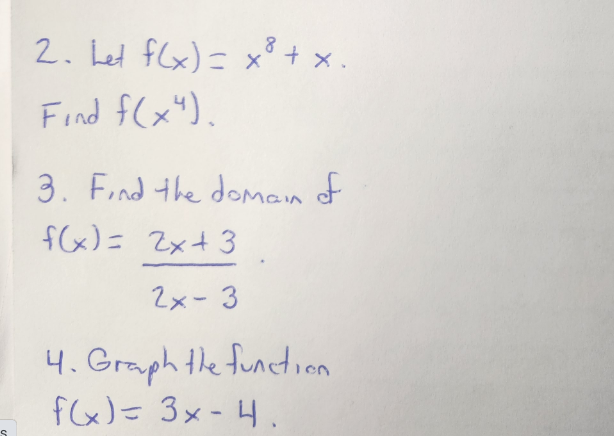 2. Let f(x) = x⁸ + x.
Find f(x⁴).
3. Find the domain of
f(x) = 2x + 3
.
2x - 3
4. Graph the function
f(x) = 3x - 4.
s